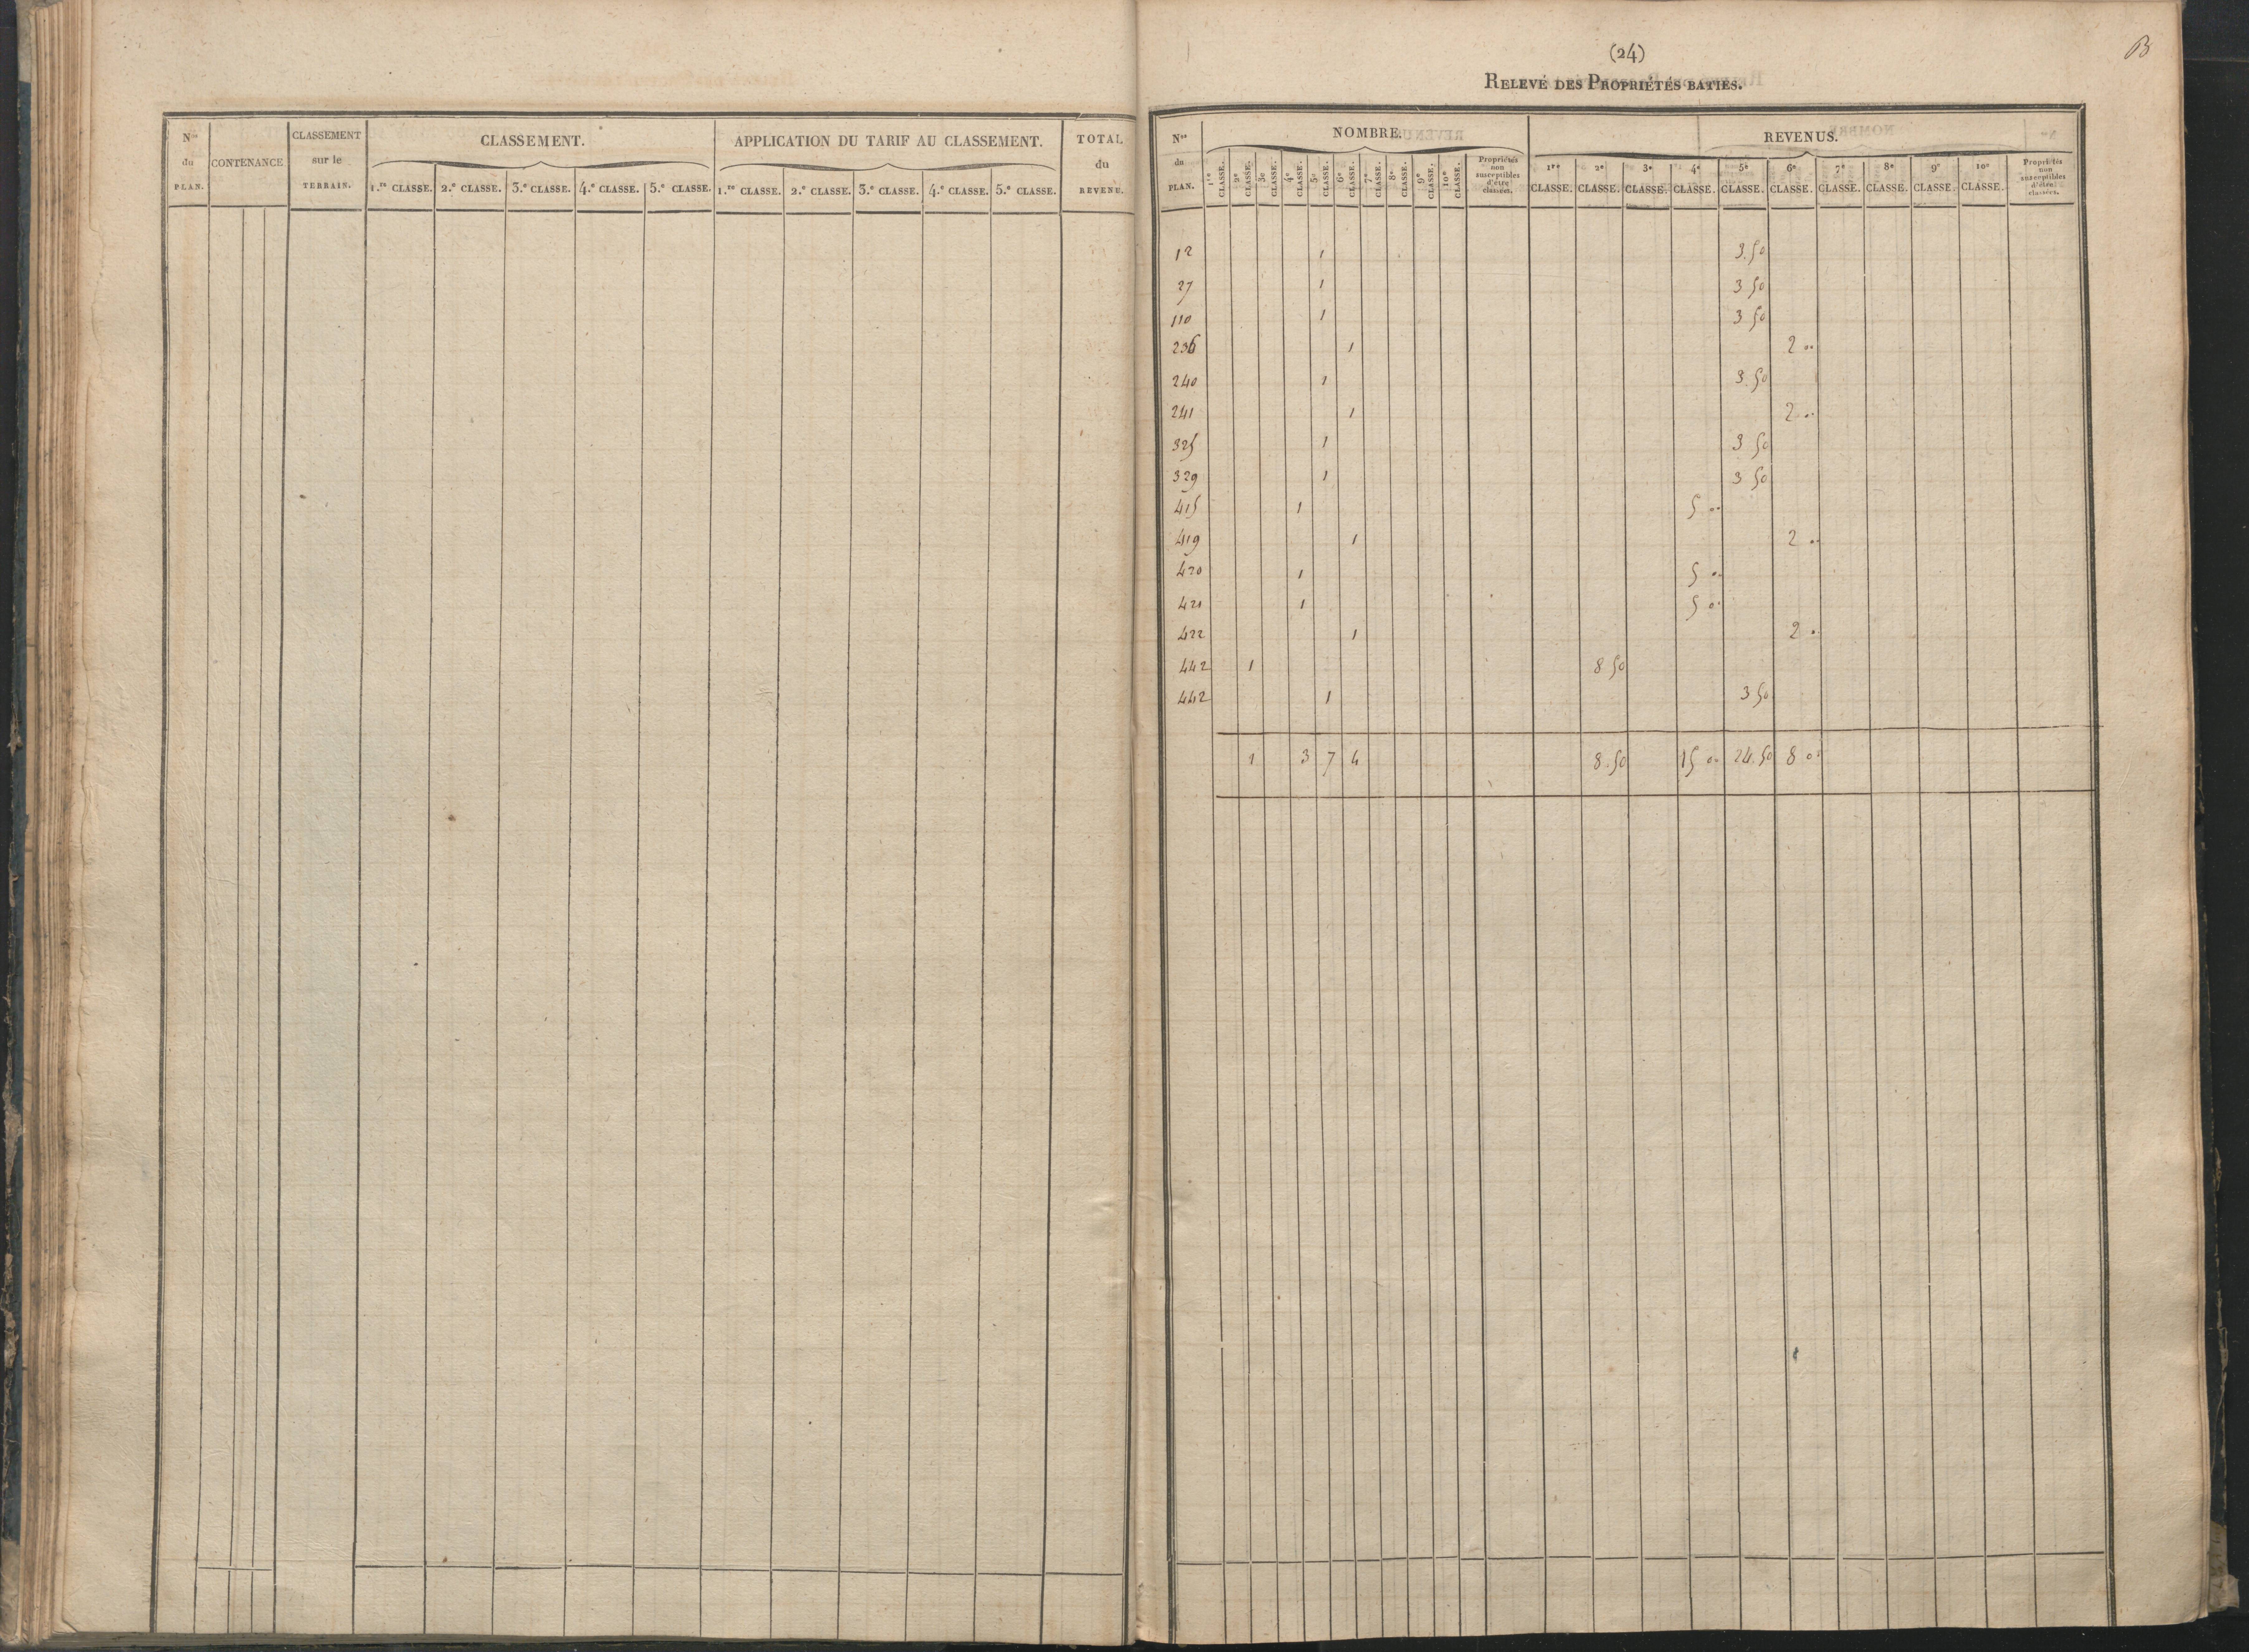 N.os du PLAN. CONTENANCE CLASSEMENT sur le TERRAIN. CLASSEMENT. APPLICATION DU TARIF AU CLASSEMENT. TOTAL du REVENU.
1.re CLASSE. 2.e CLASSE. 3.e CLASSE. 4.e CLASSE. 5.e CLASSE. 1.re CLASSE. 2.e CLASSE. 3.e CLASSE. 4.e CLASSE. 5.e CLASSE.
B
(24)
RELEVÉ DES PROPRIÉTÉS BATIES.
Nos du PLAN. NOMBRE. REVENUS.
1re CLASSE. 2e CLASSE. 3e CLASSE. 4e CLASSE. 5e CLASSE. 6e CLASSE. 7e CLASSE. 8e CLASSE. 9e CLASSE. 10e CLASSE. Propriétés non susceptibles d'être classées. 1re CLASSE. 2e CLASSE. 3e CLASSE. 4e CLASSE. 5e CLASSE. 6e CLASSE. 7e CLASSE. 8e CLASSE. 9e CLASSE. 10e CLASSE. Propriétés non susceptibles d'être classées.
12 1 3.50
27 1 3 50
110 1 3 50
236 1 2 ..
240 1 3.50
241 1 2 ..
325 1 3 50
329 1 3 50
415 1 5 ..
419 1 2 ..
420 1 5 ..
421 1 5 ..
422 1 2 ..
442 1 8 50
442 1 3 50
1 3 7 4 8.50 15 00 24.50 8 00